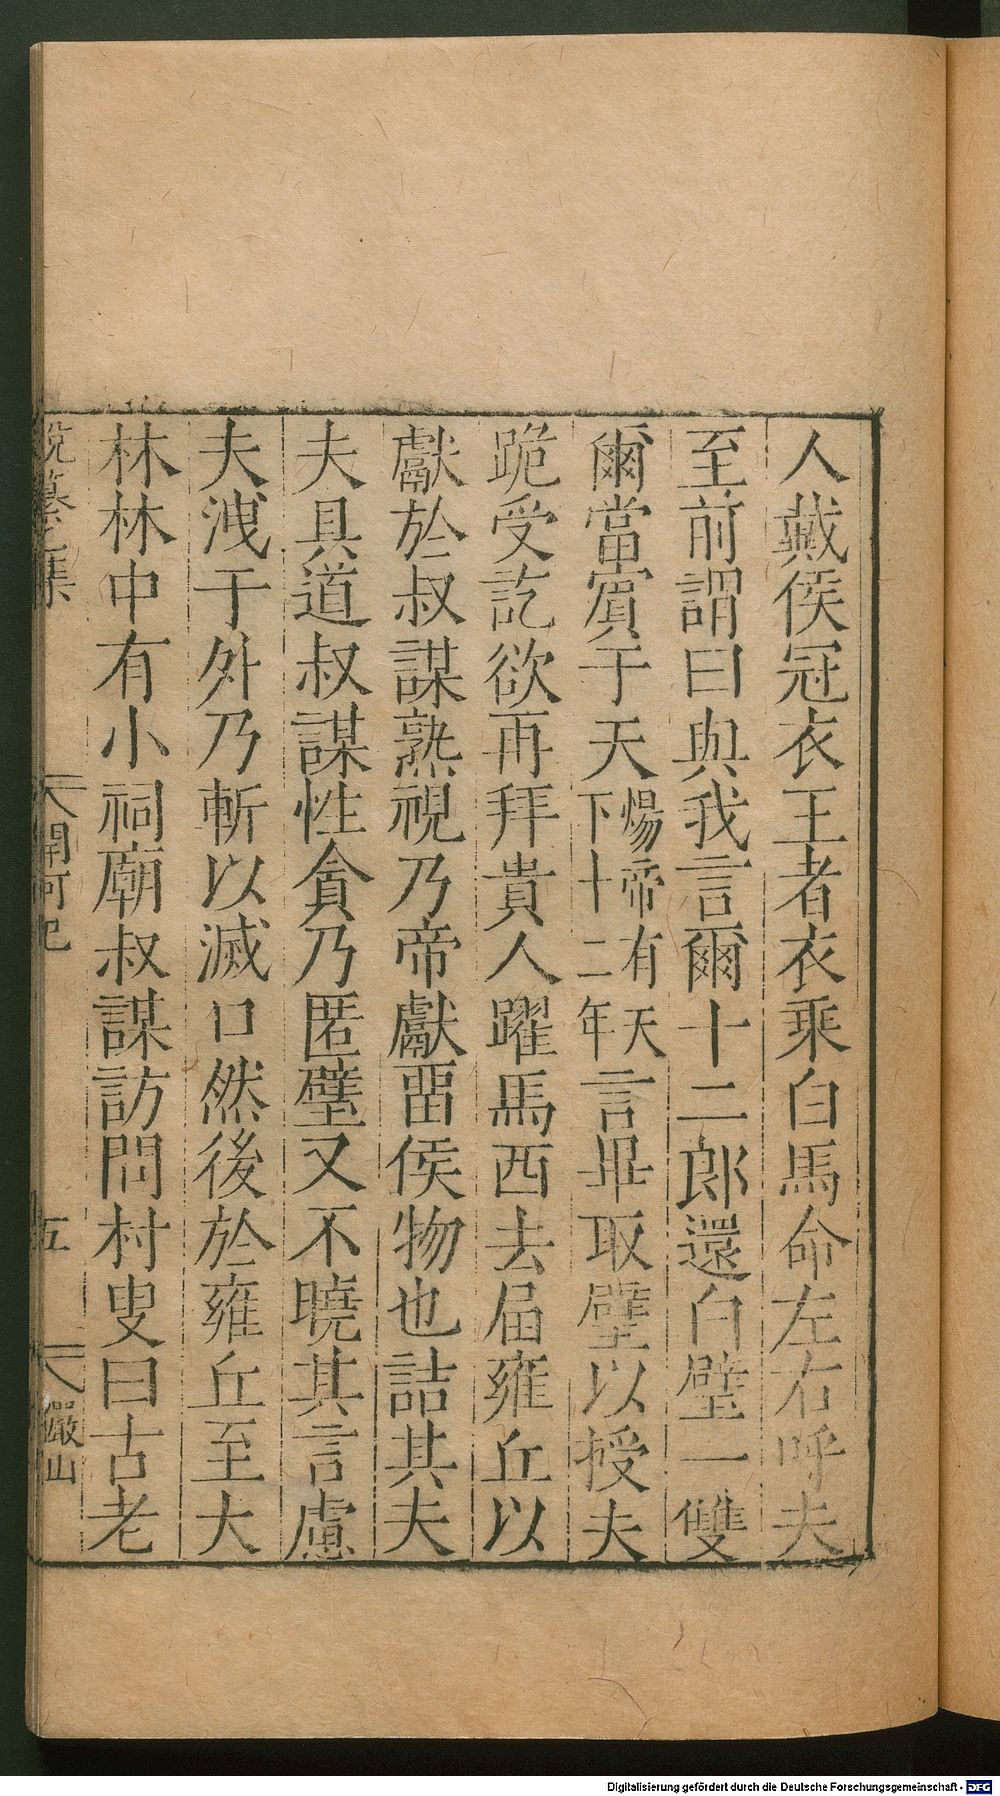 人戴侯冠衣王者衣乘白馬命左右呼夫
至前謂曰與我言爾十二郎還白璧一雙
爾當賓于天煬帝有天下十二年言畢取璧以授夫
跪受訖欲再拜貴人躍馬西去届雍丘以
獻於叔謀熟視乃帝獻畱侯物也詰其夫
夫具道叔謀性貪乃匿璧又不曉其言慮
夫洩于外乃斬以滅口然後於雍丘至大
林林中有小祠廟叔謀訪問村叟曰古老
說纂 集 開河記 五 巖山
Digitalisierung gefördert durch die Deutsche Forschungsgemeinschaft - DFG